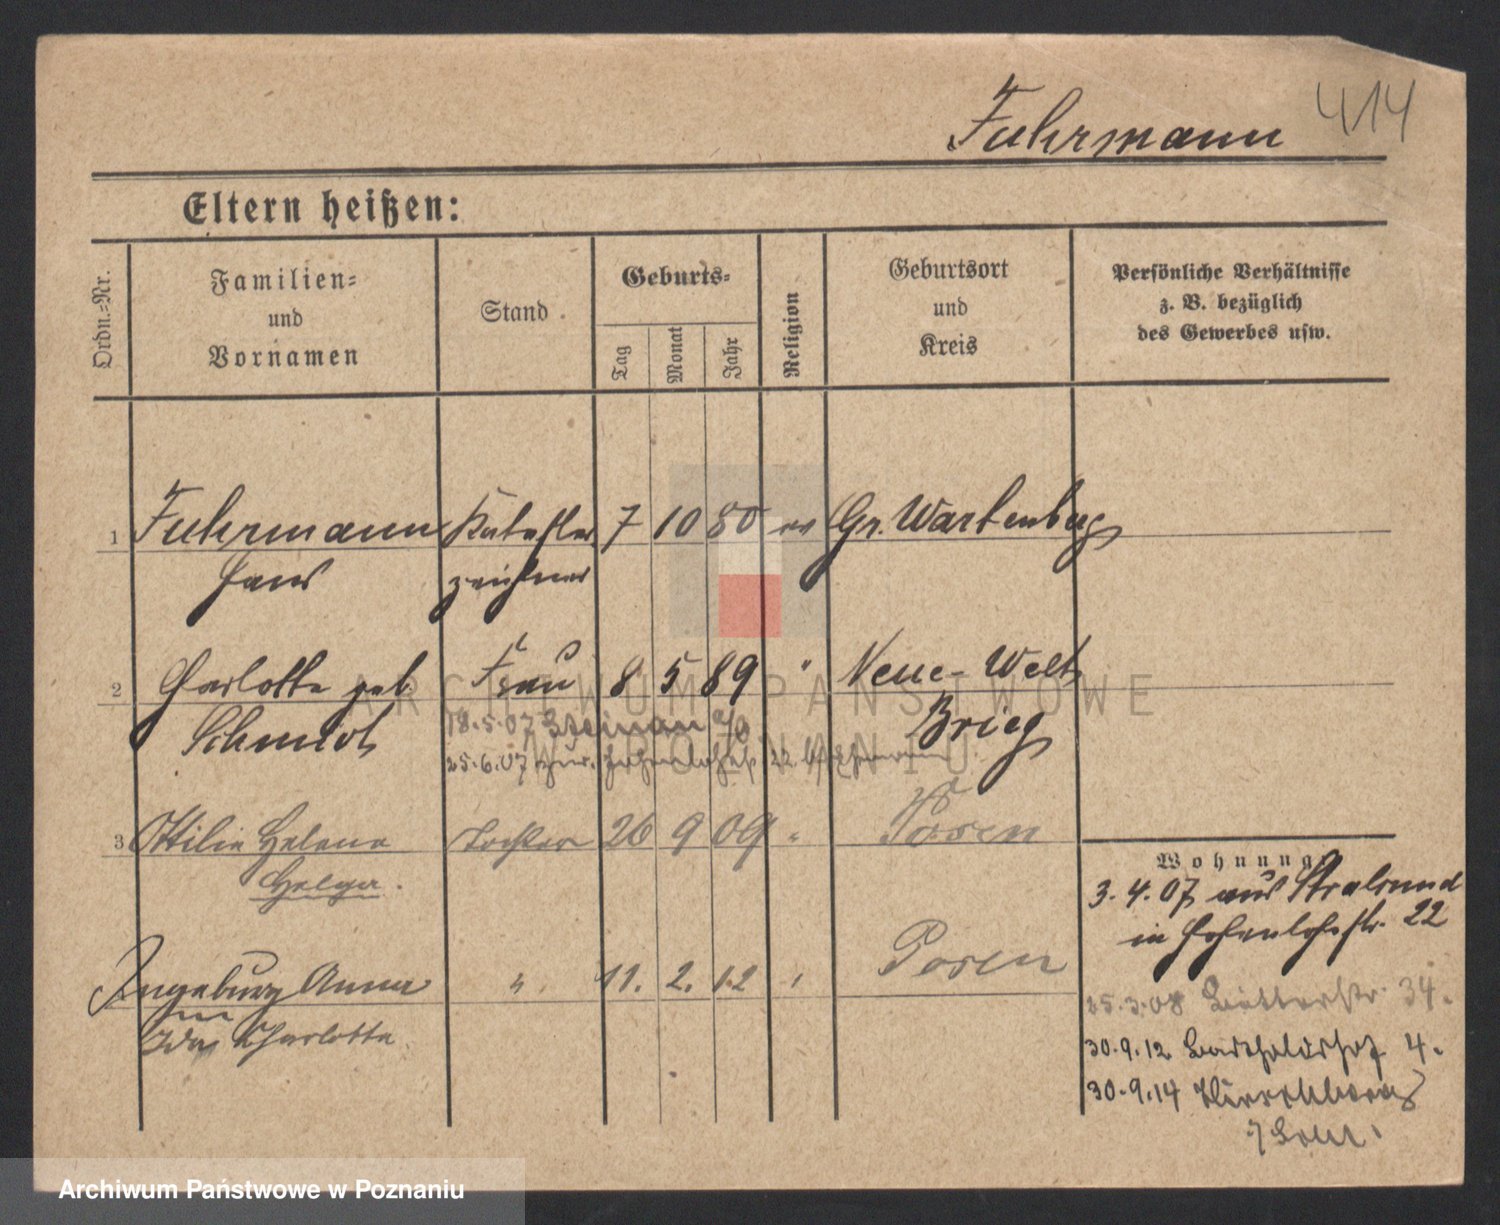 Fuhrmann 414
Eltern heißen:
Ordn.-Nr.
Familien-
und
Vornamen
Stand
Geburts-
Tag
Monat
Jahr
Religion
Geburtsort
und
Kreis
Persönliche Verhältnisse
z. B. bezüglich
des Gewerbes usw.
1 Fuhrmann Kataster 7 10 80 ev Gr. Wartenberg
Hans zeichner
2 Charlotte geb. Frau 8 5 89 " Neue-Welt
Schmidt Brieg
18.5.07 Steinau a/O
25.6.07 zur. Hohenlohestr. 22
3 Ottilie Helene Tochter 26 9 09 " Posen
Helga.
Ingeburg Anna " 11. 2. 12 " Posen
Ida Charlotte
Wohnung
3.4.07 aus Stralsund
in Hohenlohestr. 22
25.3.08 34.
30.9.12 Bartholdshof 4.
30.9.14 Hirschberg
ARCHIWUM PAŃSTWOWE
W POZNANIU
Archiwum Państwowe w Poznaniu